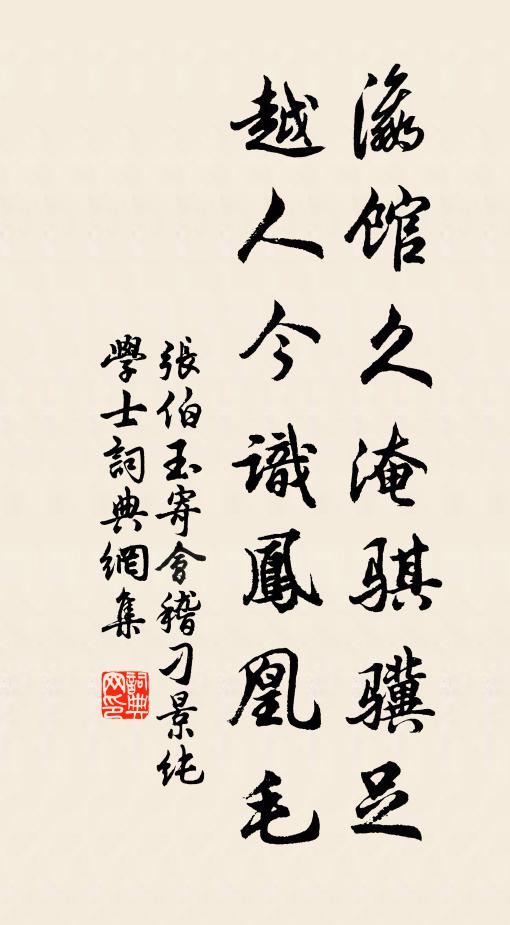 瀛馆久淹骐骥足
越人今識鳳凰毛
張伯玉寄會稽刁景纯
學士詞典網集
詞典
网印